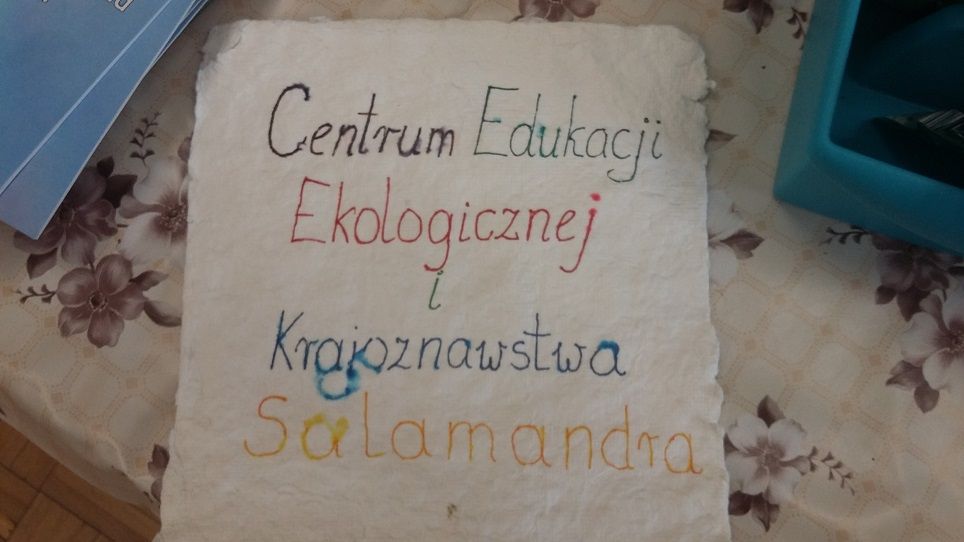 Centrum Edukacji
Ekologicznej
i
Krajoznawstwa
Salamandra